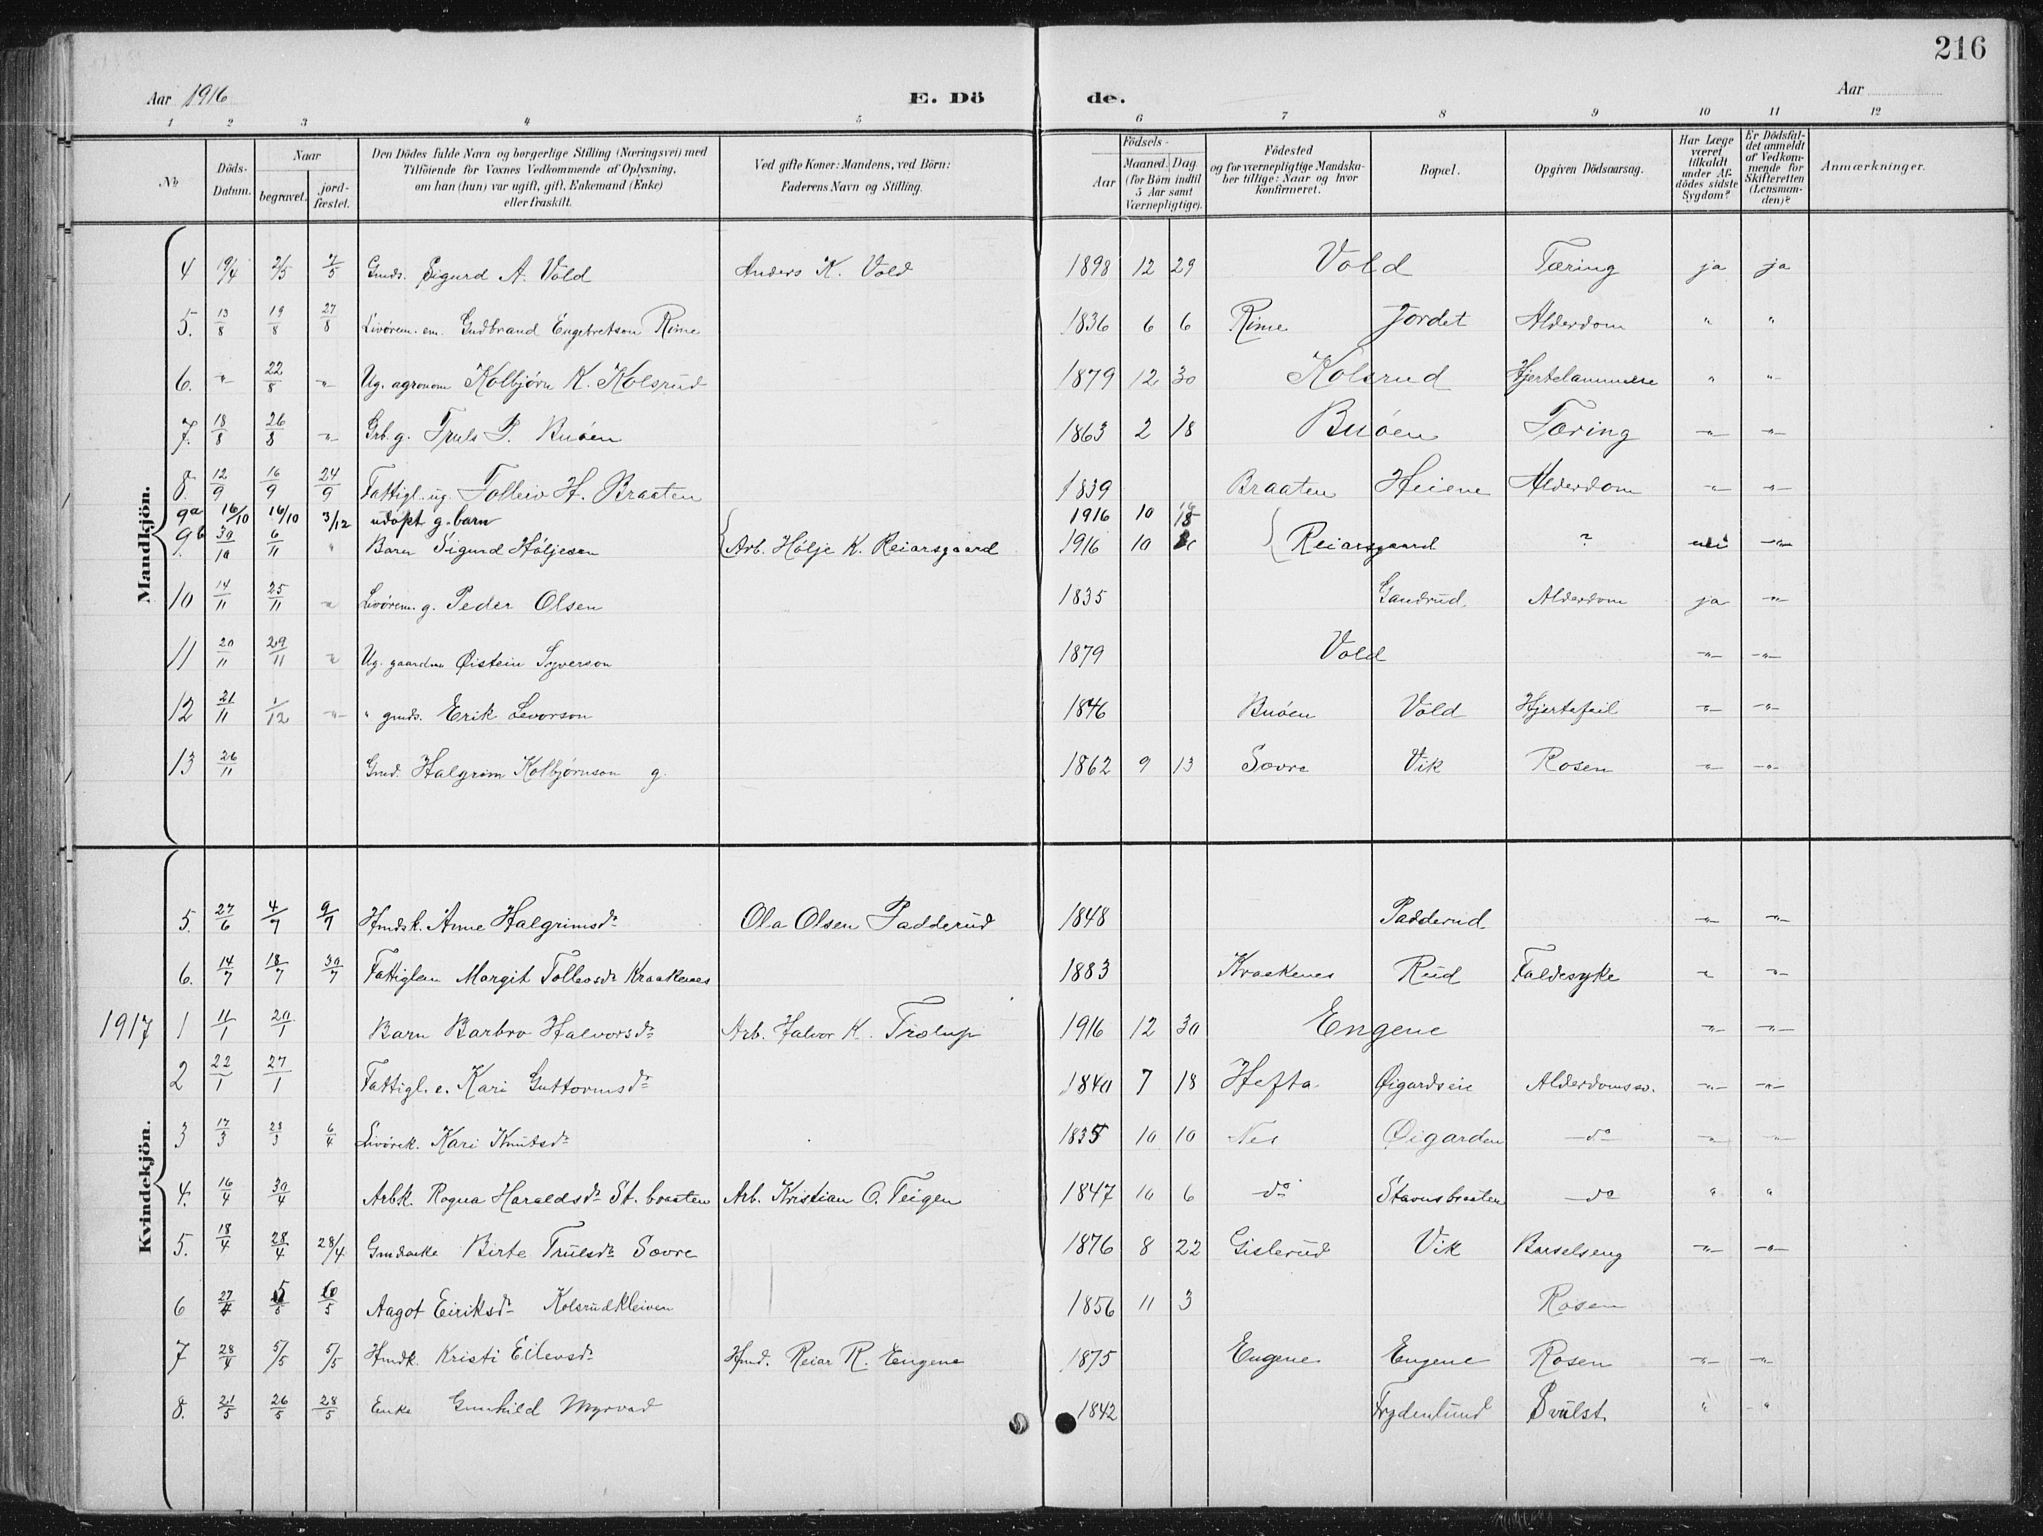 216
Aar 1916 E. Dö de. Aar
1 2 3 4 5 6 7 8 9 10 11 12
No. Döds-Datum. Naar begravet. jord-fæstet. Den Dödes fulde Navn og borgerlige Stilling (Næringsvei) med Tilföiende for Voxnes Vedkommende af Oplysning, om han (hun) var ugift, gift, Enkemand (Enke) eller fraskilt. Ved gifte Koner: Mandens, ved Börn: Faderens Navn og Stilling. Födsels- Aar Maaned. Dag (for Börn indtil 5 Aar samt Værnepligtige). Födested og for værnepligtige Mandska-ber tillige: Naar og hvor konfirmeret. Bopæl. Opgiven Dödsaarsag. Har Læge været tilkaldt under Af-dödes sidste Sygdom? Er Dödsfal-det anmeldt af Vedkom-mende for Skifteretten (Lensman-den)? Anmærkninger.
Mandkjön.
4 19/4 2/5 7/5 Gmds. Sigurd A. Vold Anders K. Vold 1898 12 29 Vold Tæring ja ja
5. 13/8 19/8 27/8 Livørem. em. Gudbrand Engebretson Rime 1836 6 6 Rime Jordet Alderdom " "
6. " 22/8 " Ug. agronom Kolbjørn K. Kolsrud 1879 12 30 Kolsrud Hjertelammelse " "
7. 18/8 26/8 " Grb. g. Truls P. Buøen 1863 2 18 Buøen Tæring " "
8. 12/9 16/9 24/9 Fattigl. ug. Tolleiv H. Braaten 1839 Braaten Heiene Alderdom " "
9a 16/10 16/10 3/12 udøpt g. barn 1916 10
9b 30/10 6/11 " Barn Sigurd Høljesen Arb. Hølje K. Reiarsgaard 1916 10 Reiarsgaard ? nei "
10 14/11 25/11 " Livørem. g. Peder Olsen 1835 Gandrud Alderdom ja "
11 20/11 29/11 " Ug. gaardm. Øistein Syverson 1879 Vold " "
12 21/11 1/12 " " gmds. Erik Levorson 1846 Buøen Vold Hjertefeil " "
13 26/11 Gmd. Halgrim Kolbjørnson g. 1862 9 13 Sovre Vik Rosen " "
Kvindekjön.
5. 27/6 4/7 9/7 Hmdsk. Anne Halgrimsdr Ola Olsen Padderud 1848 Padderud " "
6. 14/7 18/7 30/7 Fattiglem Margit Tollevsdr Kraakenes 1883 Kraakenes Rud Faldesyke " "
1917 1 11/1 20/1 Barn Barbro Halvorsdr Arb. Halvor K. Trolup 1916 12 30 Engene " "
2 22/1 27/1 Fattigl. e. Kari Guttormsdr 1840 7 18 Hefta Øigardseie Alderdomssv. " "
3 17/3 23/3 6/4 Livørek. Kari Knutsdr 1835 10 10 Nes Øigarden do " "
4. 16/4 30/4 Arbk. Rogna Haraldsdr St. braaten Arb. Kristian O. Teigen 1847 10 6 do Stavnsbraaten do " "
5. 18/4 28/4 28/4 Gmdenke Birte Trulsdr Sovre 1876 8 22 Gislerud Vik Barselseng " "
6 27/4 5/5 6/5 Aagot Eiriksdr Kolsrudkleiven 1856 11 3 Rosen
7 28/4 5/5 5/5 Hmdk. Kristi Eilevsdr Hmd. Reiar R. Engene 1875 Engene Engene Rosen " "
8. 21/5 26/5 28/5 Enke Gunhild Myrvad 1842 Frydenlund Svulst " "